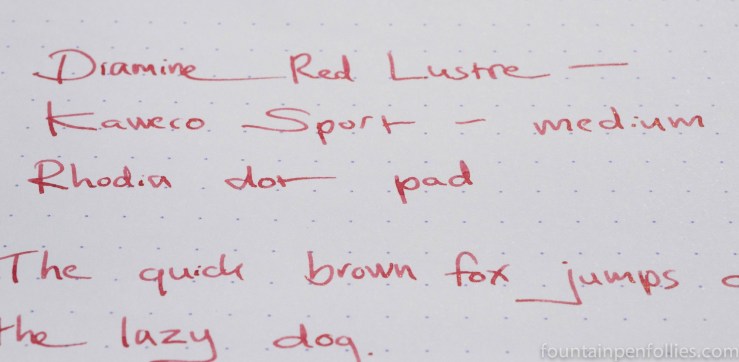 Diamine Red Lustre —
Kaweco Sport - medium
Rhodia dot pad
The quick brown fox jumps
the lazy dog.
fountainpenfollies.com